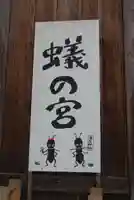 蟻の宮